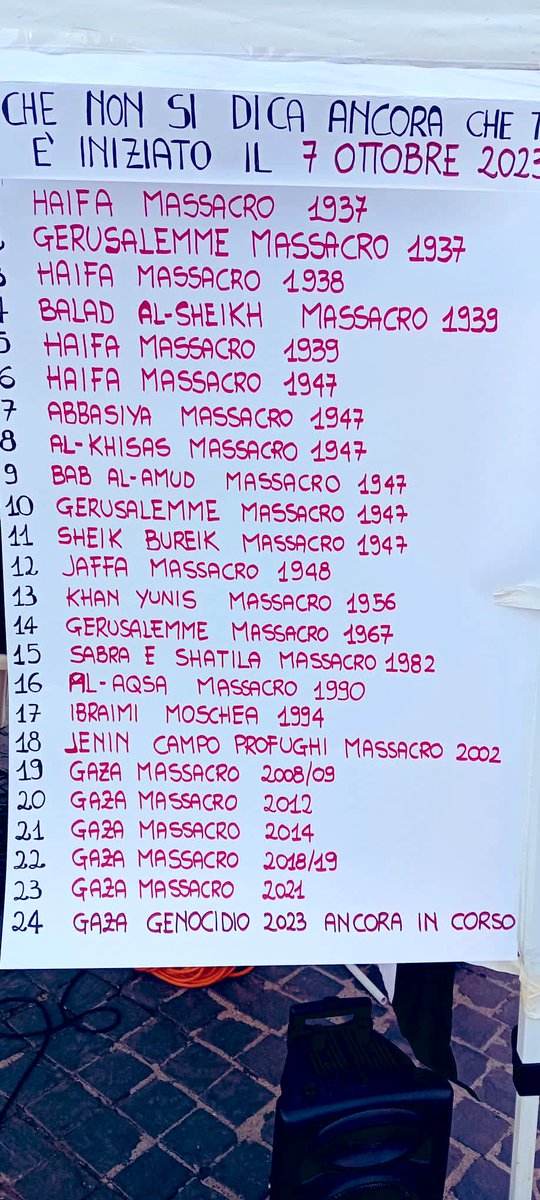 CHE NON SI DICA ANCORA CHE
È INIZIATO IL 7 OTTOBRE 2023
HAIFA MASSACRO 1937
GERUSALEMME MASSACRO 1937
HAIFA MASSACRO 1938
BALAD AL-SHEIKH MASSACRO 1939
5 HAIFA MASSACRO 1939
6 HAIFA MASSACRO 1947
7 ABBASIYA MASSACRO 1947
8 AL-KHISAS MASSACRO 1947
9 BAB AL-AMUD MASSACRO 1947
10 GERUSALEMME MASSACRO 1947
11 SHEIK BUREIK MASSACRO 1947
12 JAFFA MASSACRO 1948
13 KHAN YUNIS MASSACRO 1956
14 GERUSALEMME MASSACRO 1967
15 SABRA E SHATILA MASSACRO 1982
16 AL-AQSA MASSACRO 1990
17 IBRAIMI MOSCHEA 1994
18 JENIN CAMPO PROFUGHI MASSACRO 2002
19 GAZA MASSACRO 2008/09
20 GAZA MASSACRO 2012
21 GAZA MASSACRO 2014
22 GAZA MASSACRO 2018/19
23 GAZA MASSACRO 2021
24 GAZA GENOCIDIO 2023 ANCORA IN CORSO